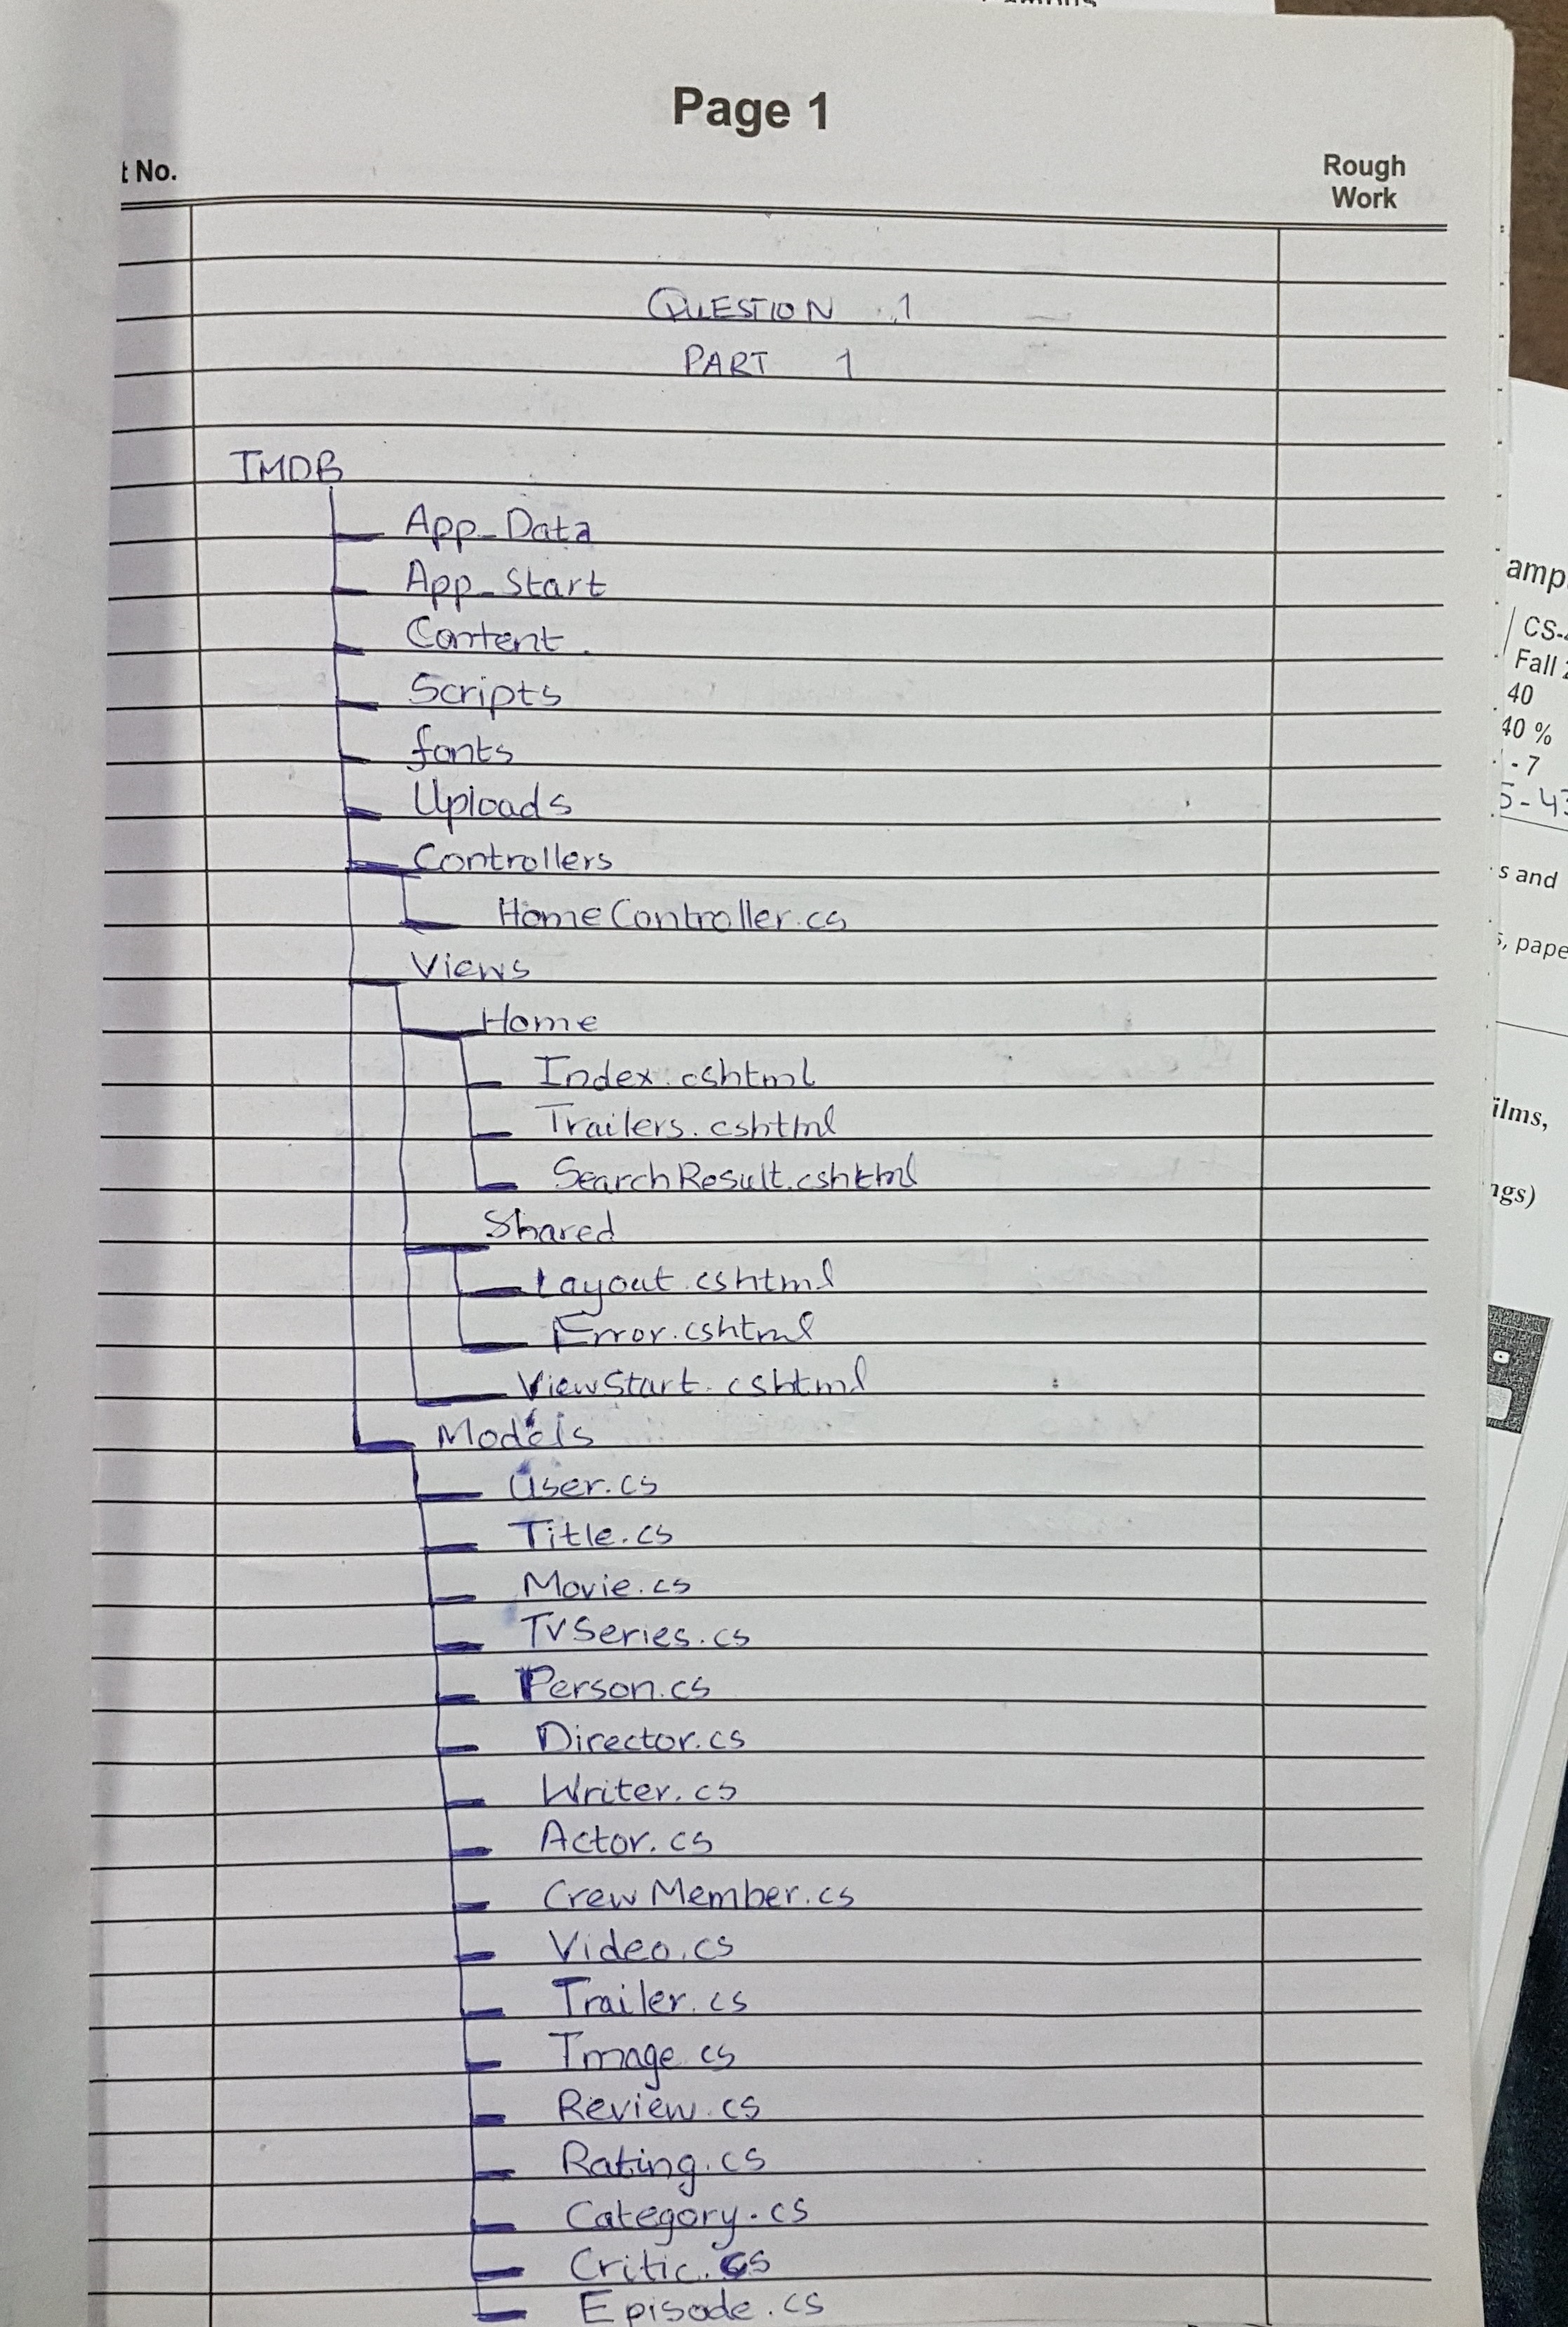 Page 1
t No.
Rough
Work
QUESTION 1
PART 1
TMDB
App_Data
App_Start
Content
Scripts
fonts
Uploads
Controllers
HomeController.cs
Views
Home
Index.cshtml
Trailers.cshtml
SearchResult.cshtml
Shared
Layout.cshtml
Error.cshtml
ViewStart.cshtml
Models
User.cs
Title.cs
Movie.cs
TVSeries.cs
Person.cs
Director.cs
Writer.cs
Actor.cs
CrewMember.cs
Video.cs
Trailer.cs
Image.cs
Review.cs
Rating.cs
Category.cs
Critic.cs
Episode.cs
amp
CS-
Fall
40
40 %
- 7
5-43
s and
, pape
ilms,
ngs)